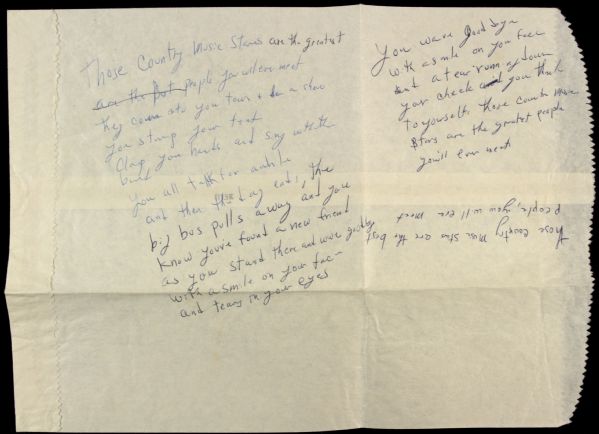 Those Country Music Stars are the greatest
are the best people you will ever meet
they come into you town + do a show
you stomp your feet
Clap you hands and sing with the
band
you all talk for awhile
and then the day ends, the
big bus pulls away and you
know you've found a new friend
as you stand there and wave goodbye
with a smile on your face
and tears in your eyes
You wave goodbye
with a smile on you face
but a tear running down
your cheek and you think
to yourself those country music
Stars are the greatest people
you'll ever meet
those country music stars are the best
people, you will ever meet